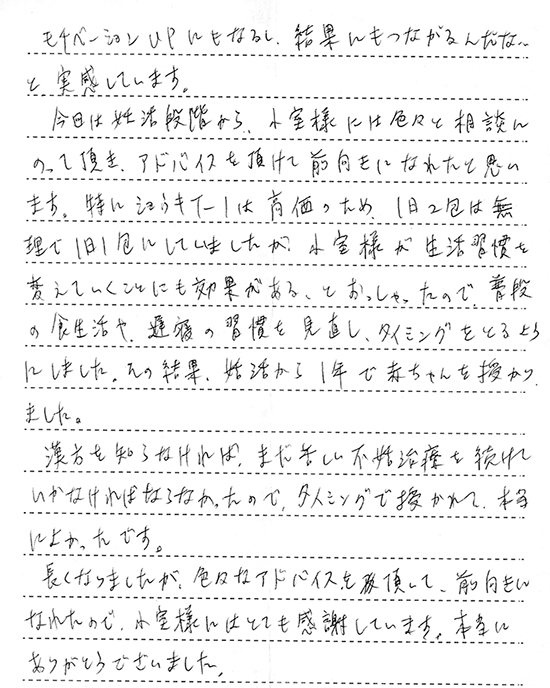 モチベーションUPにもなるし、結果にもつながるんだな〜
と実感しています。
今日は妊活段階から、小室様には色々と相談に
のって頂き、アドバイスを頂けて前向きになれたと思い
ます。特にショウキT-1は高価のため、1日2包は無
理で1日1包にしていましたが、小室様が生活習慣を
変えていくことにも効果がある、とおっしゃったので、普段
の食生活や、遅寝の習慣を見直し、タイミングをとるよう
にしました。その結果、妊活から1年で赤ちゃんを授かり
ました。
漢方を知らなければ、まだ苦しい不妊治療を続けて
いかなければならなかったので、タイミングで授かれて、本当
によかったです。
長くなりましたが、色々なアドバイスを頂して、前向きに
なれたので、小室様にはとても感謝しています。本当に
ありがとうございました。